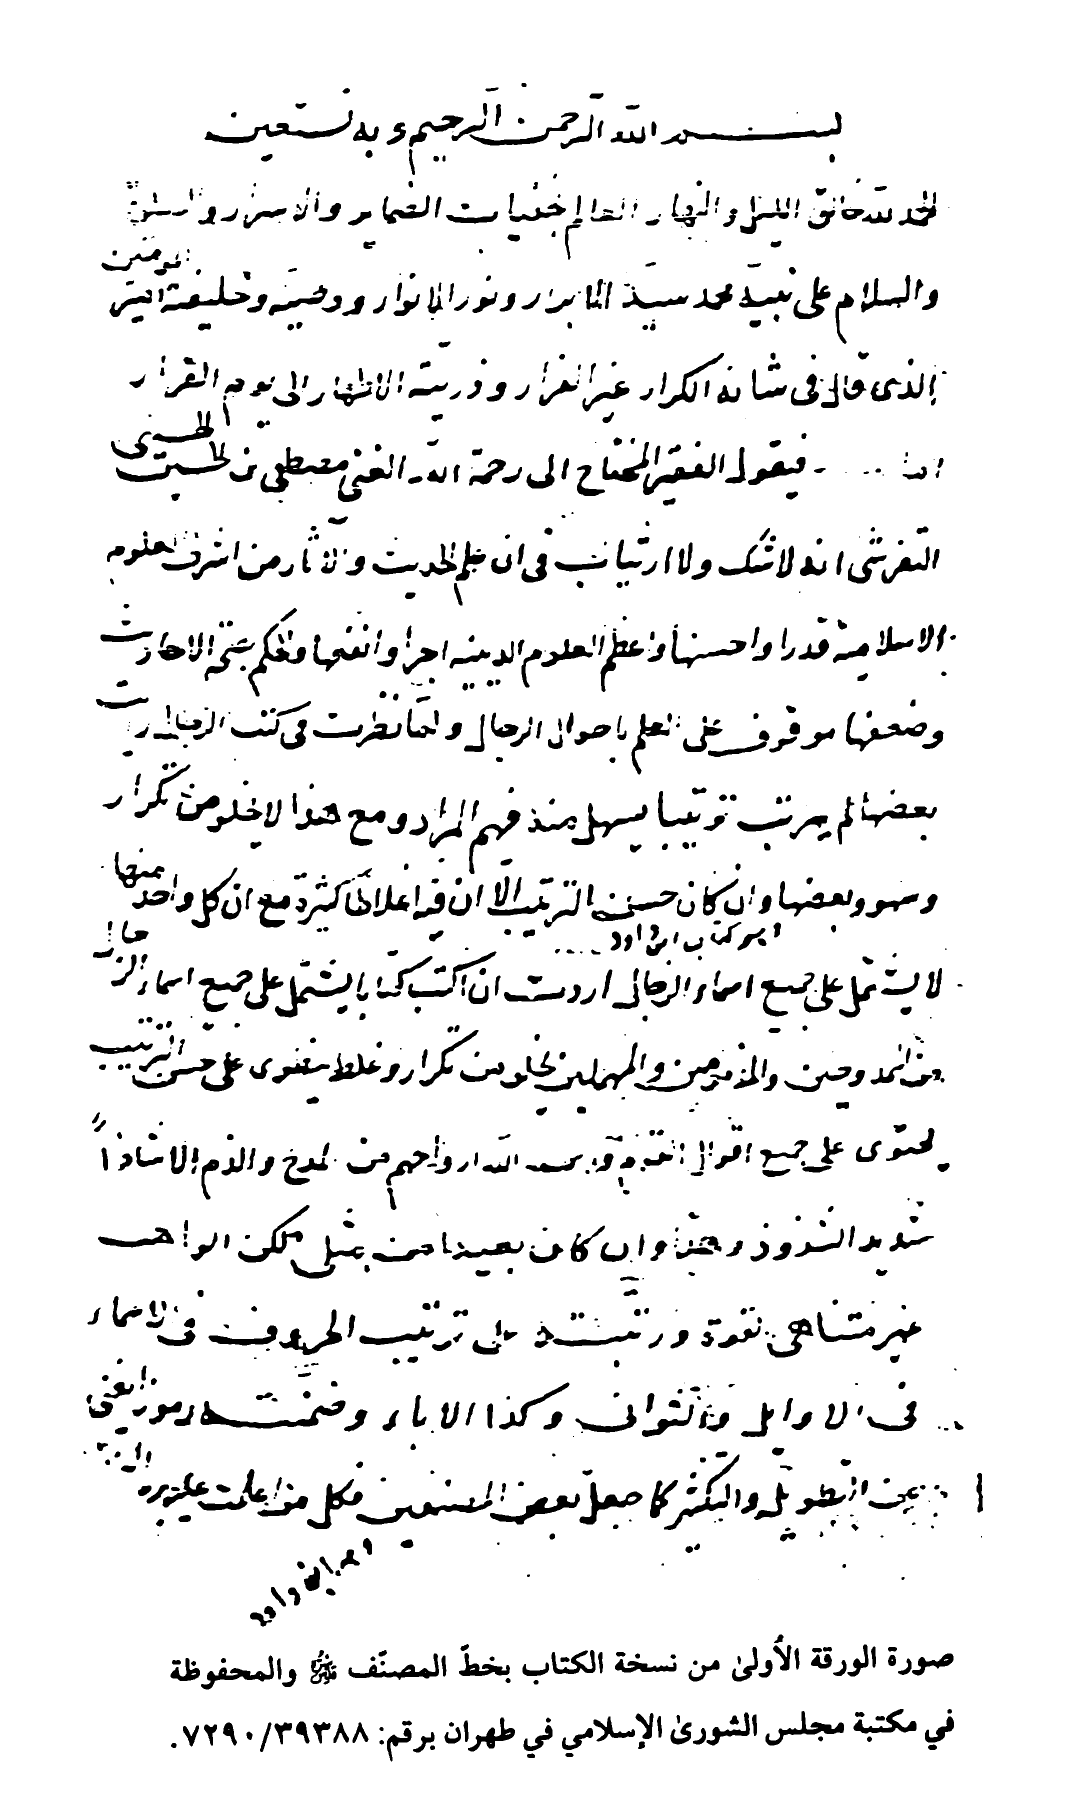 بسم الله الرحمن الرحيم وبه نستعين
الحمد لله خالق الليل والنهار العالم بخفيات الضماير والاسرار و
والسلام على نبيه محمد سيد الابرار ونور الانوار ووصيه وخليفته امير المومنين
الذى قال فى شانه الكرار غير الفرار وذريته الاطهار الى يوم القرار
فيقول الفقير المحتاج الى رحمة الله الغنى مصطفى بن الحسين الحسينى
التفرشى انه لا شك ولا ارتياب فى ان علم الحديث والاثار من اشرف العلوم
الاسلامية قدرا واحسنها واعظم العلوم الدينيه اجرا وانفعها والحكم بصحة الاحاديث
وضعفها موقوف على العلم باحوال الرجال ولما نظرت فى كتب الرجال رايت
بعضها لم يرتب ترتيبا يسهل منه فهم المراد ومع هذا لا يخلو من تكرار
وسهو وبعضها وان كان حسن الترتيب الا ان فيه اغلاطا كثيرة مع ان كل واحد منها
هو كتاب ابن داود
لا يشتمل على جميع اسماء الرجال اردت ان اكتب كتابا يشتمل على جميع اسماء الرجال
من الممدوحين والمذمومين والمهملين يخلو من تكرار وغلط ينطوى على حسن الترتيب
يحتوى على جميع اقوال القوم قدس الله ارواحهم من المدح والذم الا شاذا
شديد الشذوذ وهذا وان كان بعيدا من مثلى لكن الواهب
غير متناهى القوة ورتبته على ترتيب الحروف فى الاسماء
فى الاوايل والثوانى وكذا الاباء وضمنته رموزا يغنى
عن التطويل والتكثير كما جعل بعض المصنفين فكل من اعلمت عليه
وهو ابن داود
صورة الورقة الأولىٰ من نسخة الكتاب بخطّ المصنّف والمحفوظة
في مكتبة مجلس الشورىٰ الإسلامي في طهران برقم: ٧٢٩٠/٣٩٣٨٨.